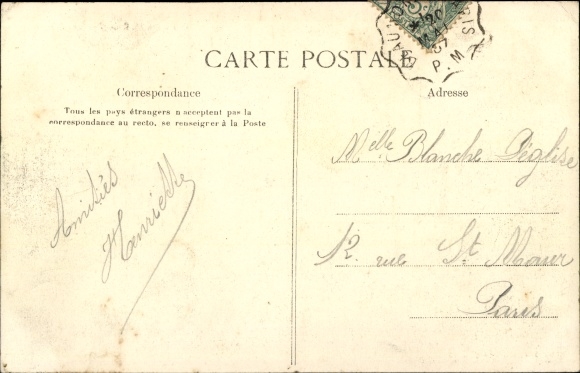 CARTE POSTALE
Correspondance
Tous les pays étrangers n'acceptent pas la
correspondance au recto, se renseigner à la Poste
Amitiés
Henriette
Adresse
Melle Blanche Déglise
12. rue St Maur
Paris
20
MAI
07
P.M